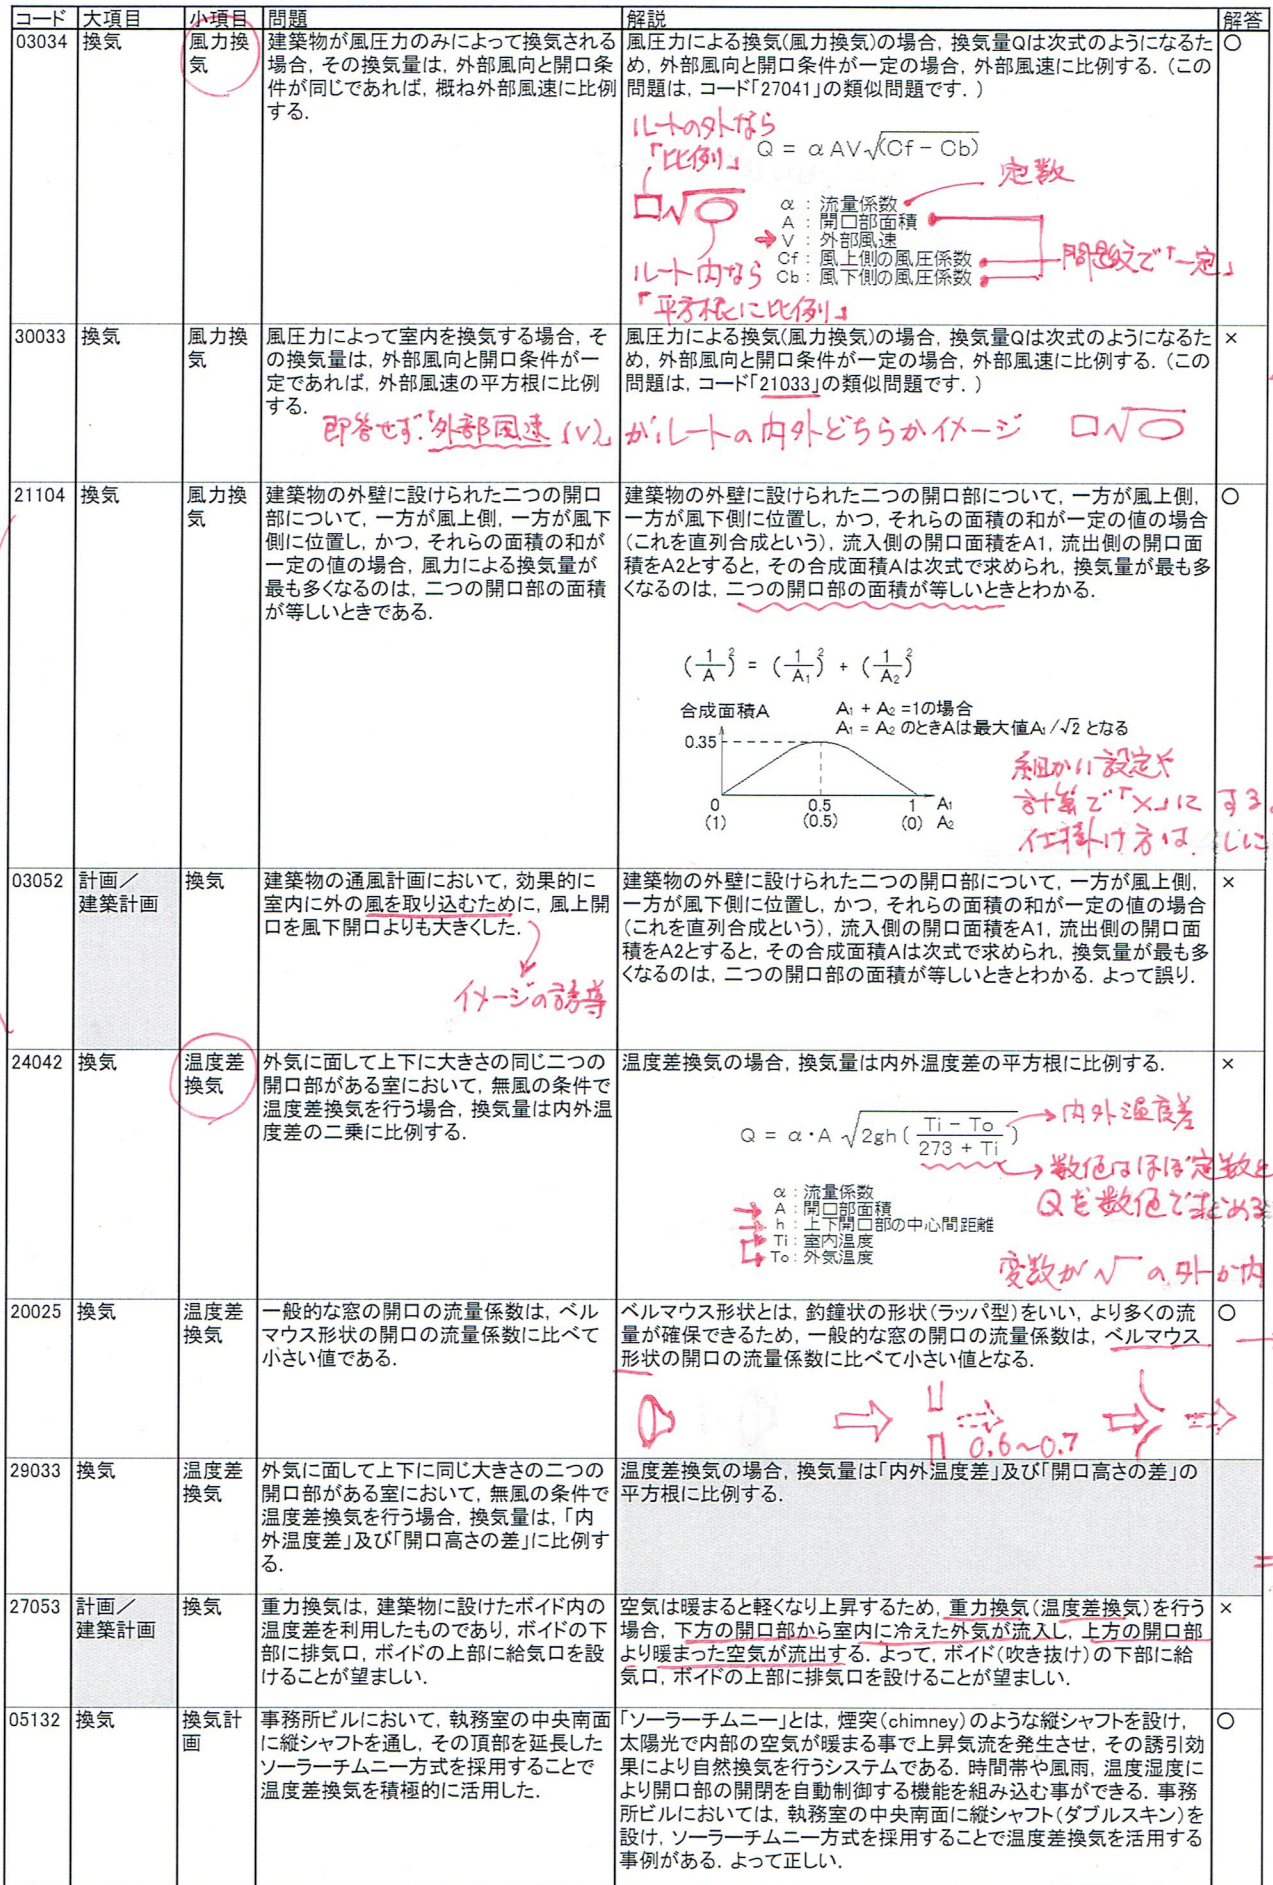 コード 大項目 小項目 問題 解説 解答
03034 換気 風力換
気
建築物が風圧力のみによって換気される
場合, その換気量は, 外部風向と開口条
件が同じであれば, 概ね外部風速に比例
する.
風圧力による換気(風力換気)の場合, 換気量Qは次式のようになるた
め, 外部風向と開口条件が一定の場合, 外部風速に比例する. (この
問題は, コード「27041」の類似問題です. )
○
ルートの外なら
「比例」
Q = αAV√(Cf − Cb)
定数
□√○
α : 流量係数
A : 開口部面積
V : 外部風速
Cf : 風上側の風圧係数
Cb : 風下側の風圧係数
問題文で「一定」
ルート内なら
「平方根に比例」
30033 換気 風力換
気
風圧力によって室内を換気する場合, そ
の換気量は, 外部風向と開口条件が一
定であれば, 外部風速の平方根に比例
する.
風圧力による換気(風力換気)の場合, 換気量Qは次式のようになるた
め, 外部風向と開口条件が一定の場合, 外部風速に比例する. (この
問題は, コード「21033」の類似問題です. )
×
即答せず.「外部風速(V)」がルートの内外どちらかイメージ □√○
21104 換気 風力換
気
建築物の外壁に設けられた二つの開口
部について, 一方が風上側, 一方が風下
側に位置し, かつ, それらの面積の和が
一定の値の場合, 風力による換気量が
最も多くなるのは, 二つの開口部の面積
が等しいときである.
建築物の外壁に設けられた二つの開口部について, 一方が風上側,
一方が風下側に位置し, かつ, それらの面積の和が一定の値の場合
(これを直列合成という), 流入側の開口面積をA1, 流出側の開口面
積をA2とすると, その合成面積Aは次式で求められ, 換気量が最も多
くなるのは, 二つの開口部の面積が等しいときとわかる.
○
(1/A)² = (1/A₁)² + (1/A₂)²
合成面積A
A₁ + A₂ =1の場合
A₁ = A₂ のときAは最大値A₁/√2 となる
0.35
0 0.5 1 A₁
(1) (0.5) (0) A₂
細かい設定や
計算で「×」にする
仕掛け方は、しに
03052 計画／
建築計画
換気
建築物の通風計画において, 効果的に
室内に外の風を取り込むために, 風上開
口を風下開口よりも大きくした.
イメージの誘導
建築物の外壁に設けられた二つの開口部について, 一方が風上側,
一方が風下側に位置し, かつ, それらの面積の和が一定の値の場合
(これを直列合成という), 流入側の開口面積をA1, 流出側の開口面
積をA2とすると, その合成面積Aは次式で求められ, 換気量が最も多
くなるのは, 二つの開口部の面積が等しいときとわかる. よって誤り.
×
24042 換気 温度差
換気
外気に面して上下に大きさの同じ二つの
開口部がある室において, 無風の条件で
温度差換気を行う場合, 換気量は内外温
度差の二乗に比例する.
温度差換気の場合, 換気量は内外温度差の平方根に比例する.
×
Q = α・A √2gh((Ti − To)/(273 + Ti))
内外温度差
数値はほぼ定数と
Qを数値で求める
α : 流量係数
A : 開口部面積
h : 上下開口部の中心間距離
Ti : 室内温度
To : 外気温度
変数が√の外か内
20025 換気 温度差
換気
一般的な窓の開口の流量係数は, ベル
マウス形状の開口の流量係数に比べて
小さい値である.
ベルマウス形状とは, 釣鐘状の形状(ラッパ型)をいい, より多くの流
量が確保できるため, 一般的な窓の開口の流量係数は, ベルマウス
形状の開口の流量係数に比べて小さい値となる.
○
0.6〜0.7
29033 換気 温度差
換気
外気に面して上下に同じ大きさの二つの
開口部がある室において, 無風の条件で
温度差換気を行う場合, 換気量は, 「内
外温度差」及び「開口高さの差」に比例す
る.
温度差換気の場合, 換気量は「内外温度差」及び「開口高さの差」の
平方根に比例する.
27053 計画／
建築計画
換気
重力換気は, 建築物に設けたボイド内の
温度差を利用したものであり, ボイドの下
部に排気口, ボイドの上部に給気口を設
けることが望ましい.
空気は暖まると軽くなり上昇するため, 重力換気(温度差換気)を行う
場合, 下方の開口部から室内に冷えた外気が流入し, 上方の開口部
より暖まった空気が流出する. よって, ボイド(吹き抜け)の下部に給
気口, ボイドの上部に排気口を設けることが望ましい.
×
05132 換気 換気計
画
事務所ビルにおいて, 執務室の中央南面
に縦シャフトを通し, その頂部を延長した
ソーラーチムニー方式を採用することで
温度差換気を積極的に活用した.
「ソーラーチムニー」とは, 煙突(chimney)のような縦シャフトを設け,
太陽光で内部の空気が暖まる事で上昇気流を発生させ, その誘引効
果により自然換気を行うシステムである. 時間帯や風雨, 温度湿度に
より開口部の開閉を自動制御する機能を組み込む事ができる. 事務
所ビルにおいては, 執務室の中央南面に縦シャフト(ダブルスキン)を
設け, ソーラーチムニー方式を採用することで温度差換気を活用する
事例がある. よって正しい.
○